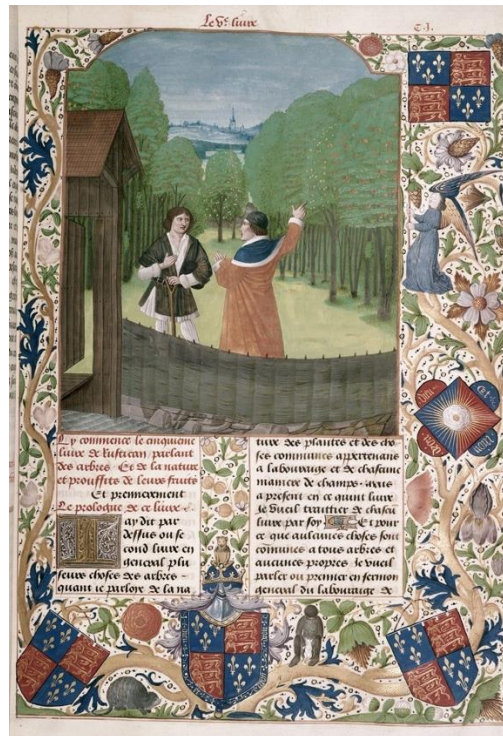 Le Ve livre
Cy commence le cinquieme
livre de Rustican parlant
des arbres Et de la nature
et prouffits de leurs fruts
Et premierement
Le prologue de ce livre
ay dit par
dessus ou se
cond livre en
general plu
seurs choses des arbres
quant ie parloye de la na
ture des plantes et des cho
ses communes appertenans
a labourage et de chascune
maniere de champs. mais
a present en ce quint livre
Je vueil traittier de
livre par soy Et pour
ce que aulcunes choses sont
communes a tous arbres et
aucunes propres Je vueil
parler ou premier en sermon
general du labourage de